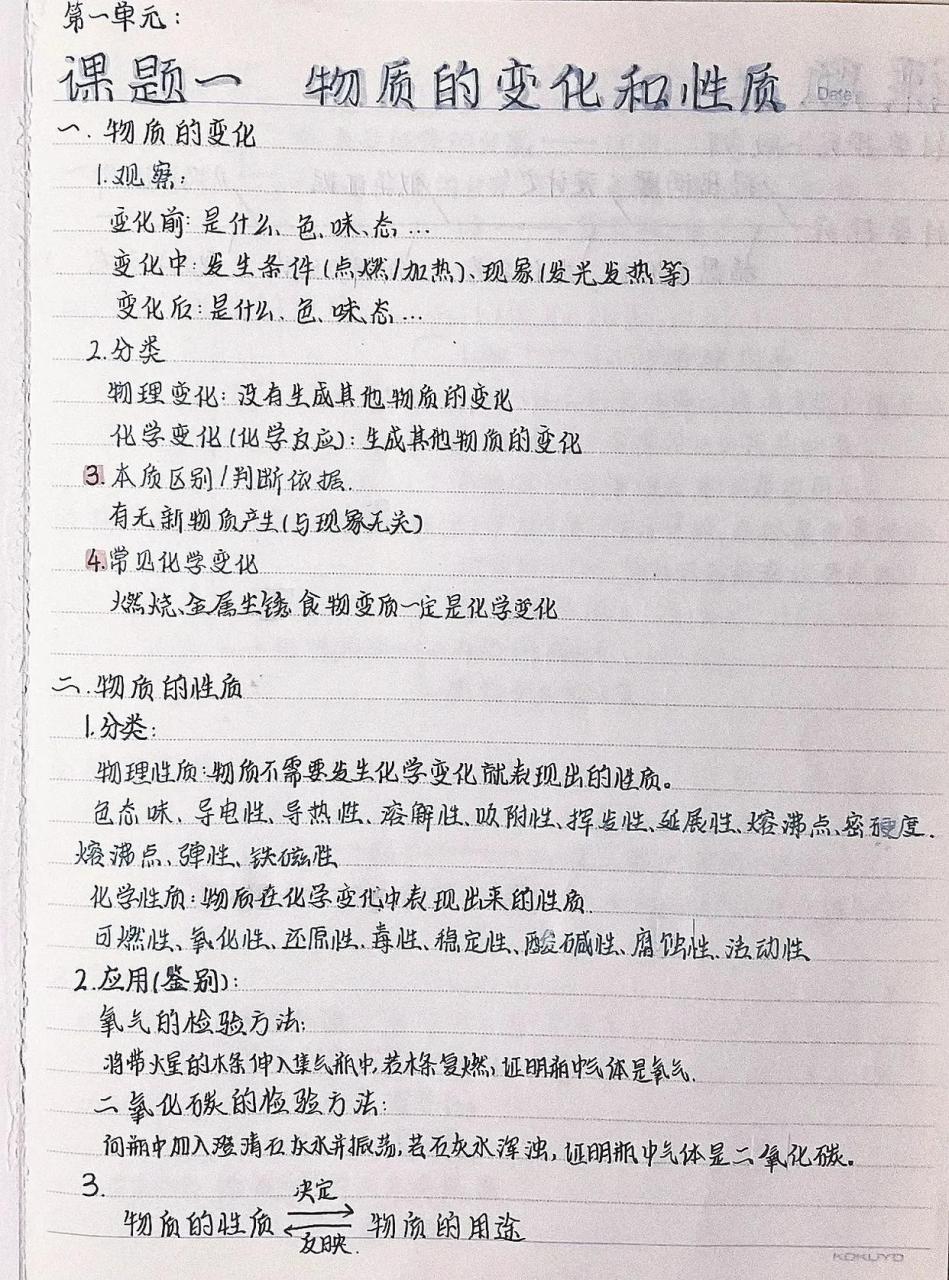 第一单元:
课题一 物质的变化和性质
Date
一.物质的变化
1.观察:
变化前:是什么、色、味、态…
变化中:发生条件(点燃/加热)、现象(发光发热等)
变化后:是什么、色、味、态…
2.分类
物理变化:没有生成其他物质的变化
化学变化(化学反应):生成其他物质的变化
3.本质区别/判断依据.
有无新物质产生(与现象无关)
4.常见化学变化
燃烧、金属生锈、食物变质一定是化学变化
二.物质的性质
1.分类:
物理性质:物质不需要发生化学变化就表现出的性质。
色态味、导电性、导热性、溶解性、吸附性、挥发性、延展性、熔沸点、密硬度.
熔沸点、弹性、铁磁性
化学性质:物质在化学变化中表现出来的性质
可燃性、氧化性、还原性、毒性、稳定性、酸碱性、腐蚀性、活动性
2.应用(鉴别):
氧气的检验方法:
将带火星的木条伸入集气瓶中,若木条复燃,证明瓶中气体是氧气.
二氧化碳的检验方法:
向瓶中加入澄清石灰水并振荡,若石灰水浑浊,证明瓶中气体是二氧化碳。
3.
决定
物质的性质 ⇌ 物质的用途
反映.
KOKUYO